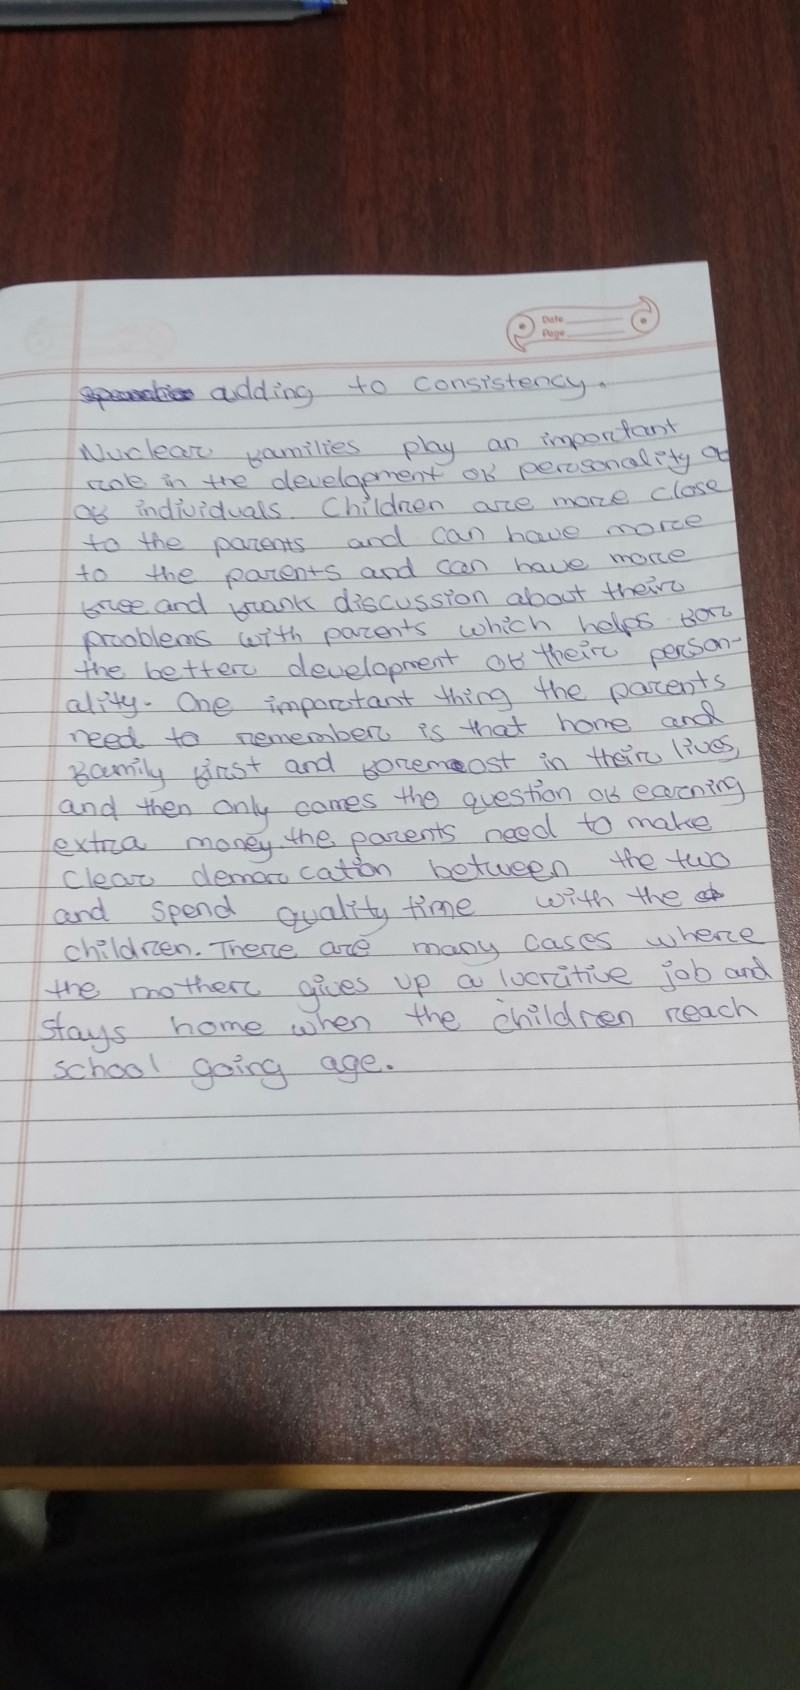 Date
Page
adding to consistency.
Nuclear families play an important
role in the development of personality
of individuals. Children are more close
to the parents and can have more
to the parents and can have more
free and frank discussion about their
problems with parents which helps for
the better development of their person-
ality. One important thing the parents
need to remember is that home and
family first and foremost in their lives,
and then only comes the question of earning
extra money. the parents need to make
clear demarcation between the two
and spend quality time with the
children. There are many cases where
the mother gives up a lucritive job and
stays home when the children reach
school going age.